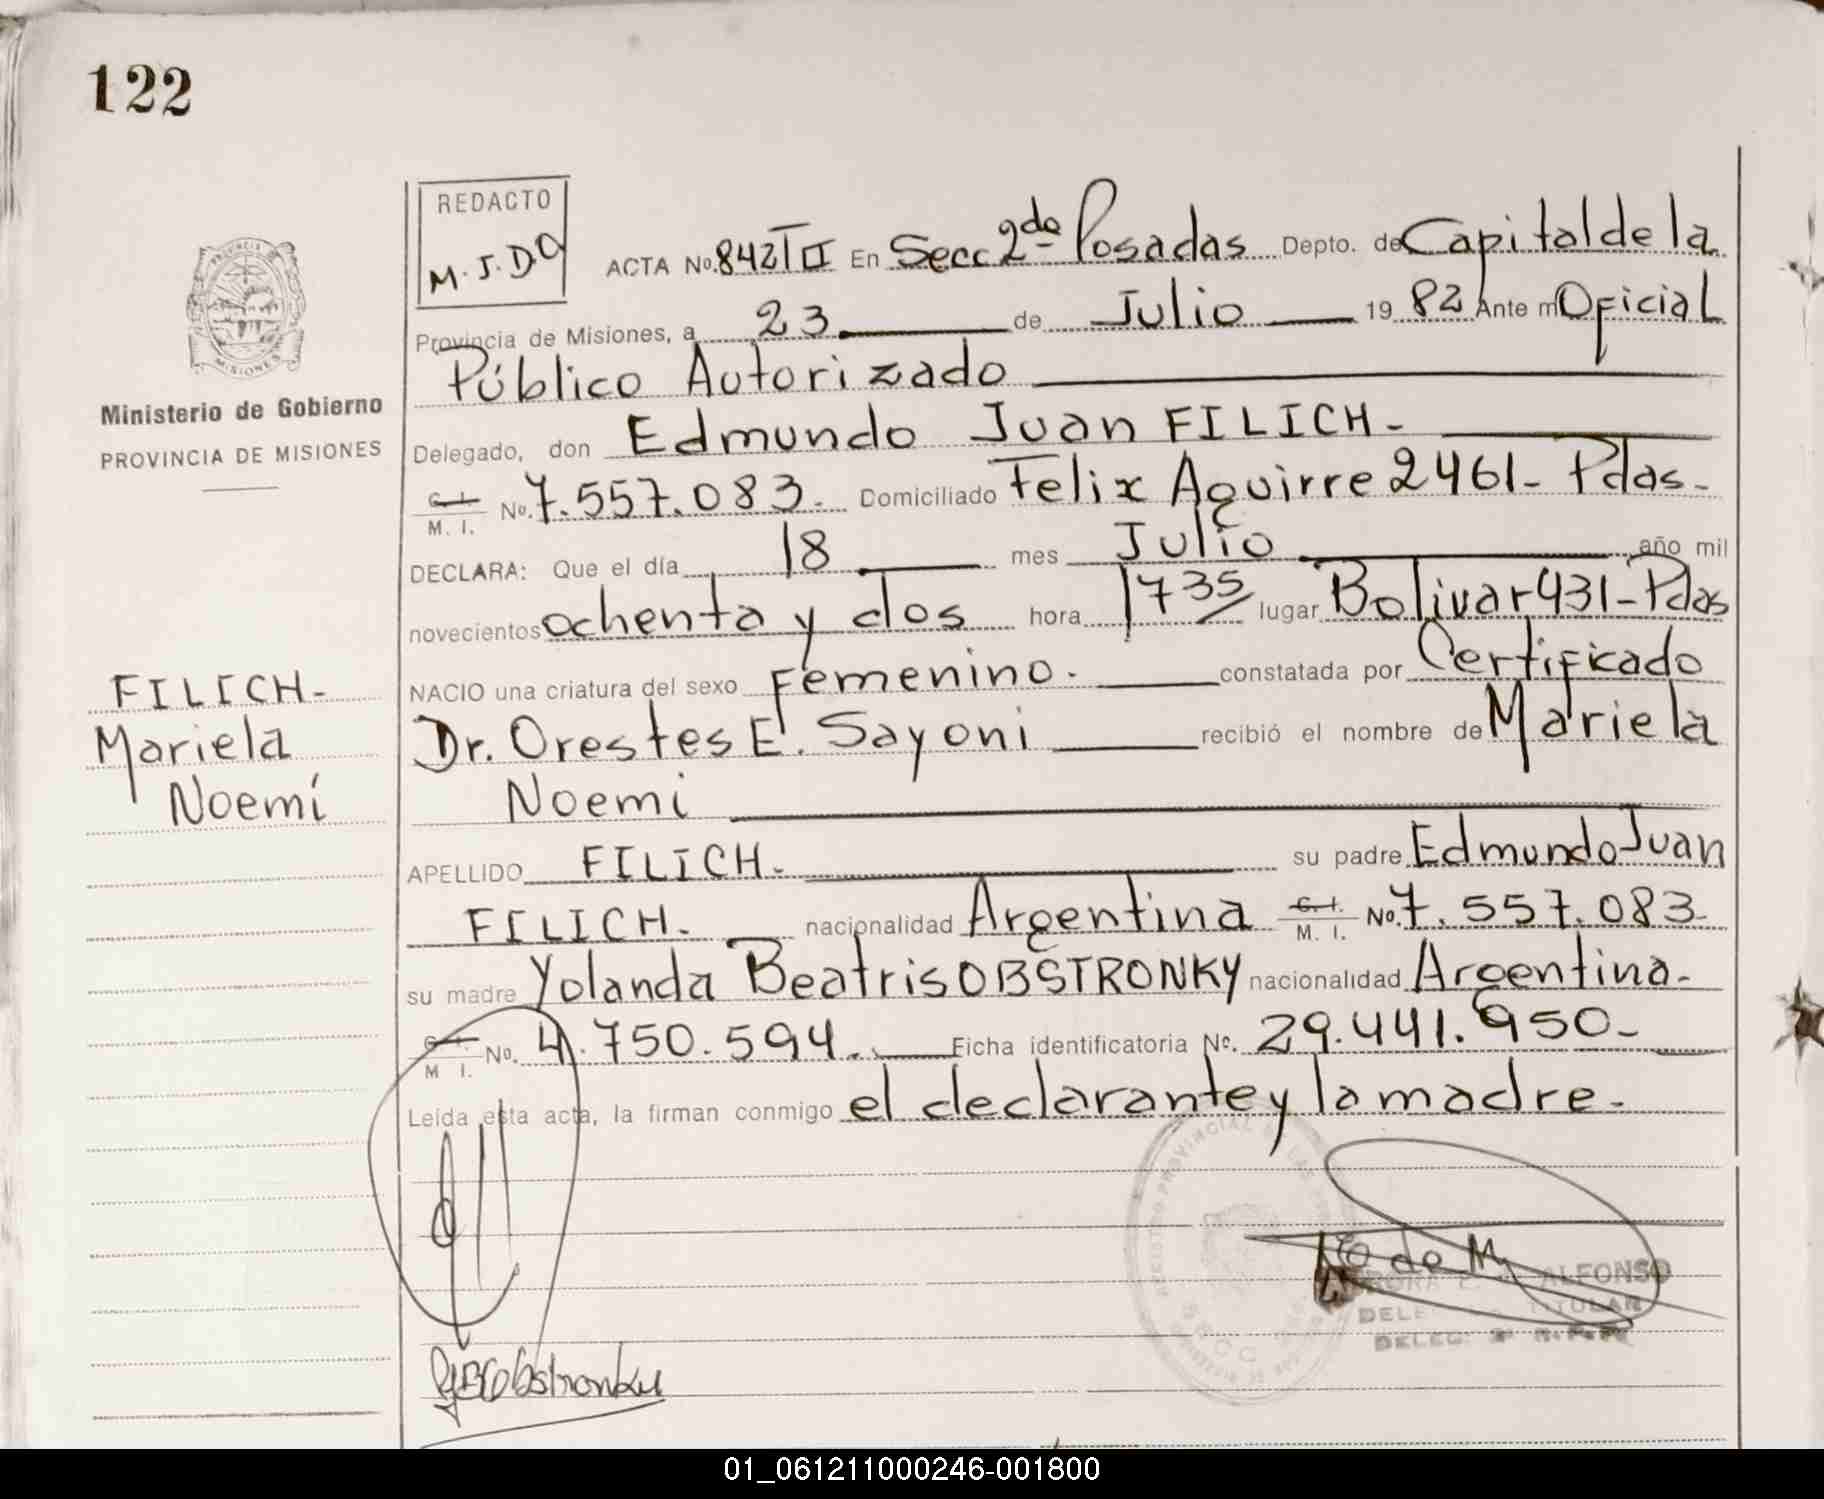 122
REDACTO
M.J.DO
ACTA No. 842 T II En Secc 2da Posadas Depto. de Capital de la
Provincia de Misiones, a 23 de Julio 1982 Ante mí Oficial
Público Autorizado
Delegado, don Edmundo Juan FILICH.
C. I. M. I. No. 7.557.083. Domiciliado Felix Aguirre 2461 - Pdas -
DECLARA: Que el día 18 mes Julio año mil
novecientos ochenta y dos hora 1735 lugar Bolivar 431 - Pdas
NACIO una criatura del sexo Femenino. constatada por Certificado
Dr. Orestes E. Sayoni recibió el nombre de Mariela
Noemi
APELLIDO FILICH. su padre Edmundo Juan
FILICH. nacionalidad Argentina C. I. M. I. No. 7.557.083
su madre Yolanda Beatris OBSTRONKY nacionalidad Argentina -
C. I. M I. No. 4.750.594. Ficha identificatoria No. 29.441.950 -
Leída esta acta, la firman conmigo el declarante y la madre.
PROVINCIA
MISIONES
Ministerio de Gobierno
PROVINCIA DE MISIONES
FILICH -
Mariela
Noemí
ALFONSO
TITULAR
DELEG.
Obstronky
01_061211000246-001800